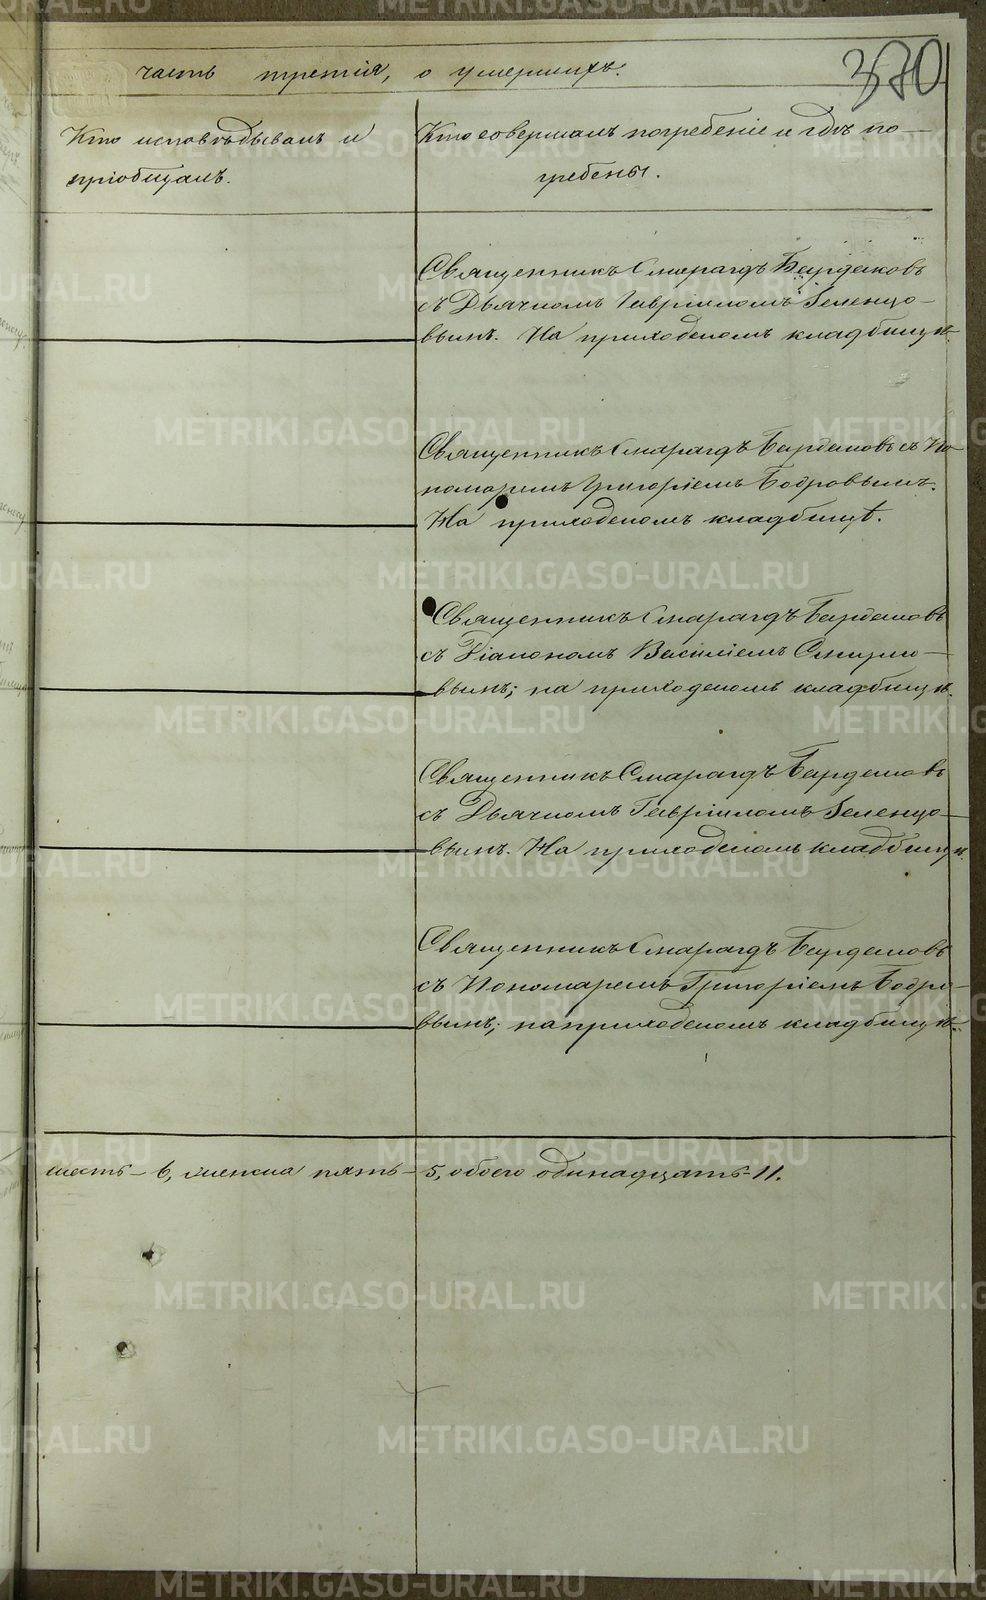 370
часть третія, о умершихъ.
Кто исповѣдывалъ и
пріобщалъ.
Кто совершалъ погребеніе и гдѣ по-
гребены.
Священникъ Смарагдъ Бирюковъ
съ Дьячкомъ Гавріиломъ Зеленцо-
вымъ. На приходскомъ кладбищѣ.
Священникъ Смарагдъ с По-
номаремъ Григоріемъ Бобровымъ.
На приходскомъ кладбищѣ.
Священникъ Смарагдъ
съ Діакономъ Василіемъ Смирно-
вымъ; на приходскомъ кладбищѣ.
Священникъ Смарагдъ
съ Дьячкомъ Гавріиломъ Зеленцо-
вымъ. На приходскомъ кладбищѣ.
Священникъ Смарагдъ
съ Пономаремъ Григоріемъ Бобро-
вымъ; на приходскомъ кладбищѣ.
шесть - 6, женска пять - 5, обоего одинадцать - 11.
METRIKI.GASO-URAL.RU